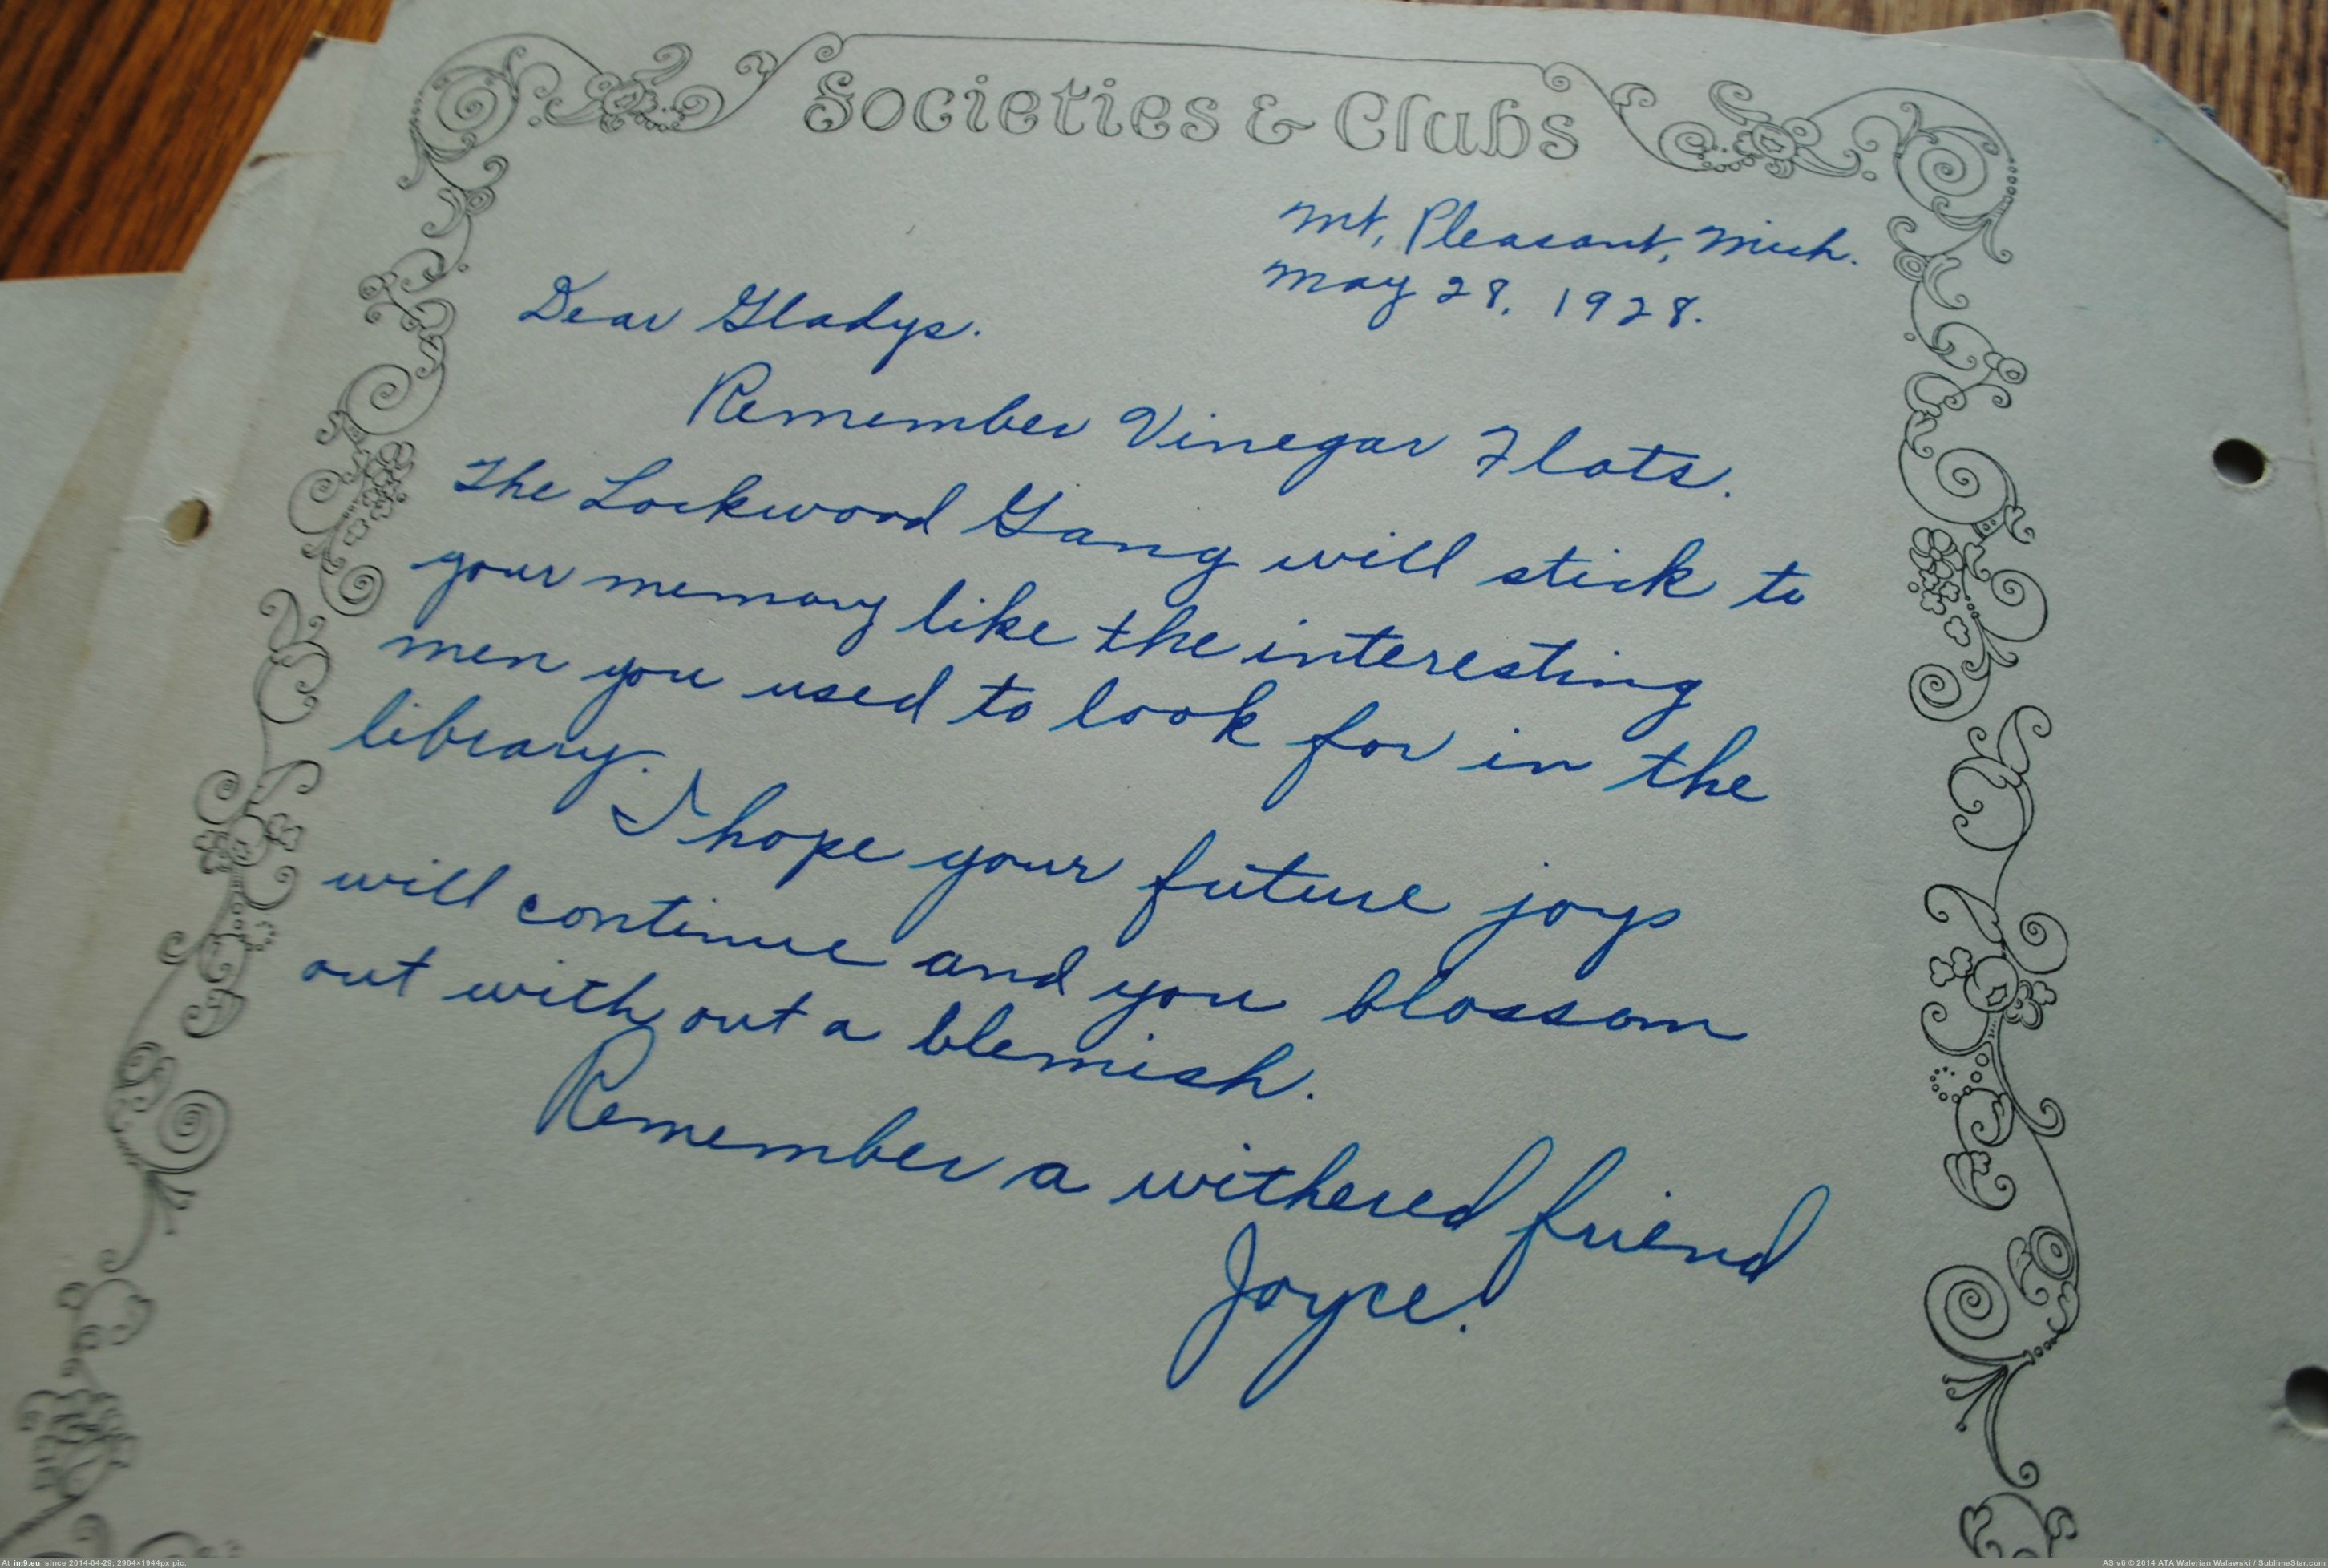 Societies & Clubs
Mt, Pleasant, Mich.
May 28, 1928.
Dear Gladys.
Remember Vinegar Flats.
The Lockwood Gang will stick to
your memory like the interesting
men you used to look for in the
library.
I hope your future joys
will continue and you blossom
out with out a blemish.
Remember a withered friend
Joyce.
At im9.eu since 2014-04-29, 2904×1944px pic.
AS v6 © 2014 ATA Walerian Walawski / SublimeStar.com